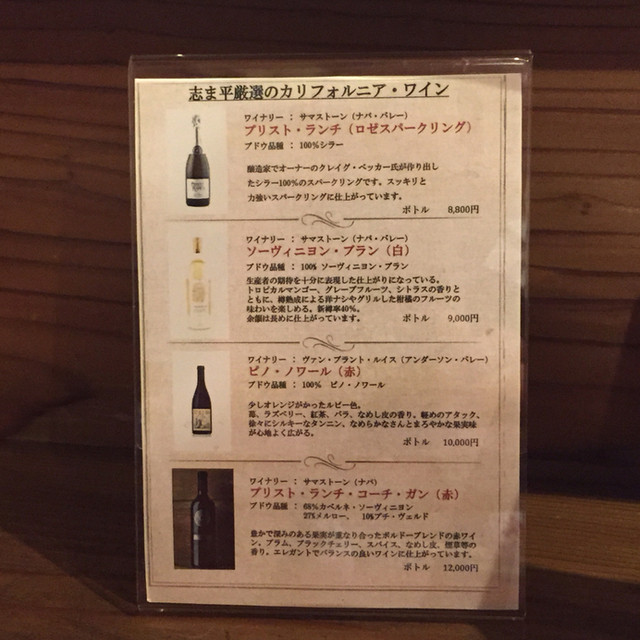 志ま平厳選のカリフォルニア・ワイン
ワイナリー : サマストーン(ナパ・バレー)
ブリスト・ランチ(ロゼスパークリング)
ブドウ品種 : 100%シラー
醸造家でオーナーのクレイグ・ベッカー氏が作り出し
たシラー100%のスパークリングです。スッキリと
力強いスパークリングに仕上がっています。
ボトル 8,800円
ワイナリー : サマストーン(ナパ・バレー)
ソーヴィニヨン・ブラン(白)
ブドウ品種 : 100% ソーヴィニヨン・ブラン
生産者の期待を十分に表現した仕上がりになっている。
トロピカルマンゴー、グレープフルーツ、シトラスの香りと
ともに、樽熟成による洋ナシやグリルした柑橘のフルーツの
味わいを楽しめる。新樽率40%。
余韻は長めに仕上がっています。
ボトル 9,000円
ワイナリー : ヴァン・ブラント・ルイス(アンダーソン・バレー)
ピノ・ノワール(赤)
ブドウ品種 : 100% ピノ・ノワール
少しオレンジがかったルビー色。
苺、ラズベリー、紅茶、バラ、なめし皮の香り。軽めのアタック、
徐々にシルキーなタンニン、なめらかなさんとまろやかな果実味
が心地よく広がる。
ボトル 10,000円
ワイナリー : サマストーン(ナパ)
ブリスト・ランチ・コーチ・ガン(赤)
ブドウ品種 : 68%カベルネ・ソーヴィニヨン
27%メルロー、 10%プチ・ヴェルド
豊かで深みのある果実が重なり合ったボルドーブレンドの赤ワイ
ン。プラム、ブラックチェリー、スパイス、なめし皮、煙草等の
香り。エレガントでバランスの良いワインに仕上がっています。
ボトル 12,000円